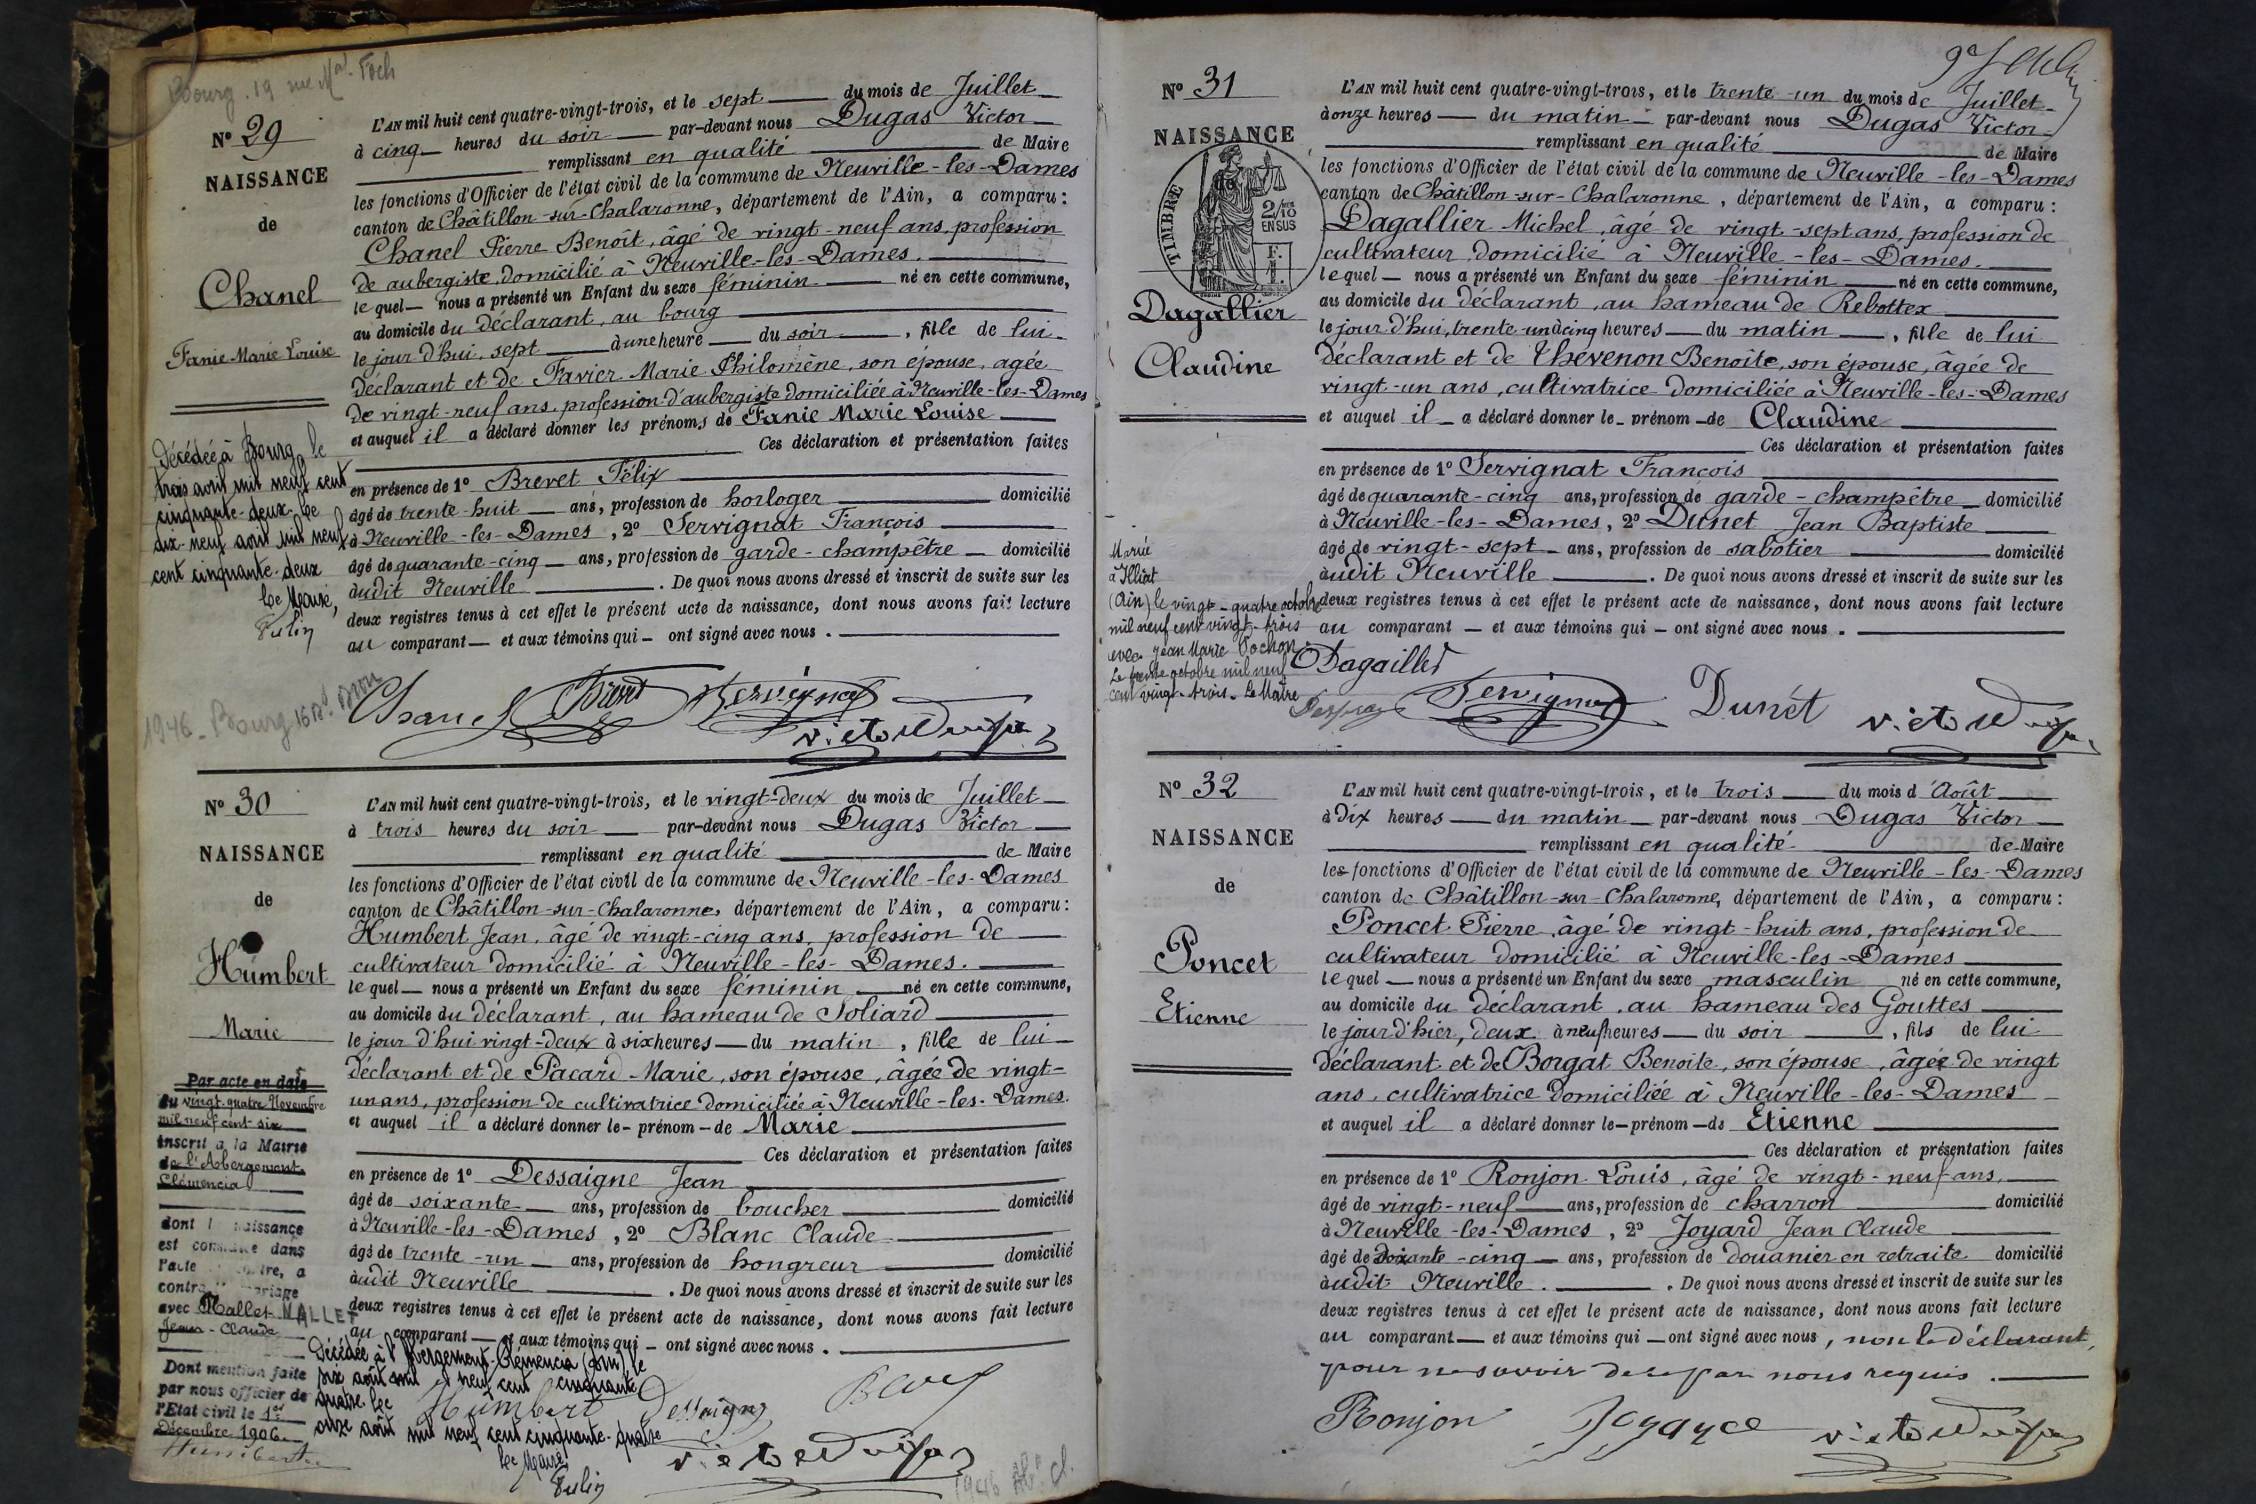 Bourg. 19 rue Mal. Foch
No 29
NAISSANCE
de
Chanel
Fanie Marie Louise
Décédée à Bourg le
trois août mil neuf cent
cinquante-deux. Le
dix-neuf août mil neuf
cent cinquante-deux
Le Maire,
L'AN mil huit cent quatre-vingt-trois, et le sept du mois de Juillet
à cinq heures du soir par-devant nous Dugas Victor
remplissant en qualité de Maire
les fonctions d'Officier de l'état civil de la commune de Neuville-les-Dames
canton de Châtillon-sur-Chalaronne, département de l'Ain, a comparu:
Chanel Pierre Benoît, âgé de vingt-neuf ans, profession
de aubergiste, domicilié à Neuville-les-Dames.
lequel nous a présenté un Enfant du sexe féminin né en cette commune,
au domicile du déclarant, au bourg
le jour d'hui, sept à une heure du soir, fille de lui
déclarant et de Favier Marie Philomène, son épouse, agée
de vingt-neuf ans, profession d'aubergiste domiciliée à Neuville-les-Dames
et auquel il a déclaré donner les prénoms de Fanie Marie Louise
Ces déclaration et présentation faites
en présence de 1o Brevet Félix
âgé de trente-huit ans, profession de horloger domicilié
à Neuville-les-Dames, 2o Servignat François
âgé de quarante-cinq ans, profession de garde-champêtre domicilié
audit Neuville. De quoi nous avons dressé et inscrit de suite sur les
deux registres tenus à cet effet le présent acte de naissance, dont nous avons fait lecture
au comparant et aux témoins qui ont signé avec nous.
1946 - Bourg 16 Bd.
Chanel Brevet Servignat
Victor Dugas
No 30
NAISSANCE
de
Humbert
Marie
Par acte en date
du vingt-quatre Novembre
mil neuf cent six
inscrit à la Mairie
de l'Abergement-
Clémencia
dont l naissance
est constatée dans
l'acte contre, a
contracté mariage
avec Mallet MALLET
Jean-Claude
Dont mention faite
par nous officier de
l'Etat civil le 1er
Décembre 1906.
L'AN mil huit cent quatre-vingt-trois, et le vingt-deux du mois de Juillet
à trois heures du soir par-devant nous Dugas Victor
remplissant en qualité de Maire
les fonctions d'Officier de l'état civil de la commune de Neuville-les-Dames
canton de Châtillon-sur-Chalaronne, département de l'Ain, a comparu:
Humbert Jean, âgé de vingt-cinq ans, profession de
cultivateur domicilié à Neuville-les-Dames.
lequel nous a présenté un Enfant du sexe féminin né en cette commune,
au domicile du déclarant, au hameau de Soliard
le jour d'hui vingt-deux à six heures du matin, fille de lui
déclarant et de Pacard Marie, son épouse, âgée de vingt-
un ans, profession de cultivatrice domiciliée à Neuville-les-Dames.
et auquel il a déclaré donner le prénom de Marie
Ces déclaration et présentation faites
en présence de 1o Dessaigne Jean
âgé de soixante ans, profession de boucher domicilié
à Neuville-les-Dames, 2o Blanc Claude
âgé de trente-un ans, profession de hongreur domicilié
audit Neuville. De quoi nous avons dressé et inscrit de suite sur les
deux registres tenus à cet effet le présent acte de naissance, dont nous avons fait lecture
au comparant et aux témoins qui ont signé avec nous.
Décédée à l'Abergement-Clémencia (Ain) le
six août mil neuf cent cinquante
quatre. Le
onze août mil neuf cent cinquante-quatre
Le Maire
Humbert Dessaigne
Victor Dugas
No 31
NAISSANCE
de
TIMBRE
2/10
EN SUS
F.
1.
Dagallier
Claudine
Mariée
à Illiat
(Ain) le vingt-quatre octobre
mil neuf cent vingt-trois
avec Jean Marie Pochon
Le trente octobre mil neuf
cent vingt-trois. Le Maire
L'AN mil huit cent quatre-vingt-trois, et le trente-un du mois de Juillet
à onze heures du matin par-devant nous Dugas Victor
remplissant en qualité de Maire
les fonctions d'Officier de l'état civil de la commune de Neuville-les-Dames
canton de Châtillon-sur-Chalaronne, département de l'Ain, a comparu:
Dagallier Michel, âgé de vingt-sept ans, profession de
cultivateur domicilié à Neuville-les-Dames.
lequel nous a présenté un Enfant du sexe féminin né en cette commune,
au domicile du déclarant, au hameau de Rebottex
le jour d'hui, trente-un à cinq heures du matin, fille de lui
déclarant et de Thévenon Benoîte, son épouse, âgée de
vingt-un ans, cultivatrice domiciliée à Neuville-les-Dames
et auquel il a déclaré donner le prénom de Claudine
Ces déclaration et présentation faites
en présence de 1o Servignat François
âgé de quarante-cinq ans, profession de garde-champêtre domicilié
à Neuville-les-Dames, 2o Dunet Jean Baptiste
âgé de vingt-sept ans, profession de sabotier domicilié
audit Neuville. De quoi nous avons dressé et inscrit de suite sur les
deux registres tenus à cet effet le présent acte de naissance, dont nous avons fait lecture
au comparant et aux témoins qui ont signé avec nous.
Dagailler
Servignat Dunét Victor Dugas
No 32
NAISSANCE
de
Poncet
Etienne
L'AN mil huit cent quatre-vingt-trois, et le trois du mois d'Août
à dix heures du matin par-devant nous Dugas Victor
remplissant en qualité de Maire
les fonctions d'Officier de l'état civil de la commune de Neuville-les-Dames
canton de Châtillon-sur-Chalaronne, département de l'Ain, a comparu:
Poncet Pierre, âgé de vingt-huit ans, profession de
cultivateur domicilié à Neuville-les-Dames
lequel nous a présenté un Enfant du sexe masculin né en cette commune,
au domicile du déclarant, au hameau des Gouttes
le jour d'hier, deux à neuf heures du soir, fils de lui
déclarant et de Borgat Benoite, son épouse, âgée de vingt
ans, cultivatrice domiciliée à Neuville-les-Dames
et auquel il a déclaré donner le prénom de Etienne
Ces déclaration et présentation faites
en présence de 1o Ronjon Louis, âgé de vingt-neuf ans,
âgé de vingt-neuf ans, profession de charron domicilié
à Neuville-les-Dames, 2o Joyard Jean Claude
âgé de soixante-cinq ans, profession de douanier en retraite domicilié
audit Neuville. De quoi nous avons dressé et inscrit de suite sur les
deux registres tenus à cet effet le présent acte de naissance, dont nous avons fait lecture
au comparant et aux témoins qui ont signé avec nous, non le déclarant,
pour ne savoir de ce par nous requis.
Ronjon Victor Dugas